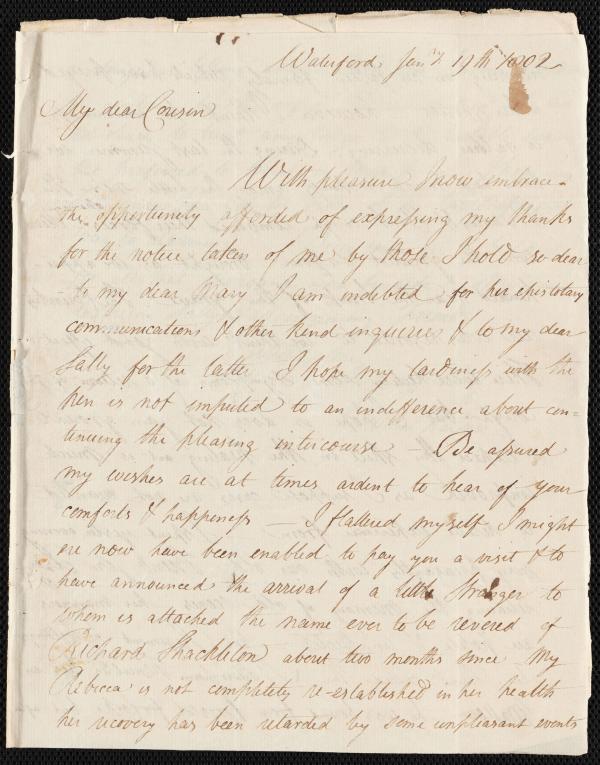 Waterford, Jany. 19th 1802
My dear Cousin
With pleasure I now embrace
the opportunity afforded of expressing my thanks
for the notice taken of me by those I hold so dear
- to my dear Mary I am indebted for her epistolary
communications & other kind inquiries & to my dear
Sally for the latter I hope my tardiness with the
pen is not imputed to an indifference about con-
tinuing the pleasing intercourse - Be assured
my wishes are at times ardent to hear of your
comforts & happiness — I flattered myself I might
ere now have been enabled to pay you a visit & to
have announced the arrival of a little stranger to
whom is attached the name ever to be revered of
Richard Shackleton about two months since. My
Rebecca is not completely re-established in her health
her recovery has been retarded by some unpleasant events